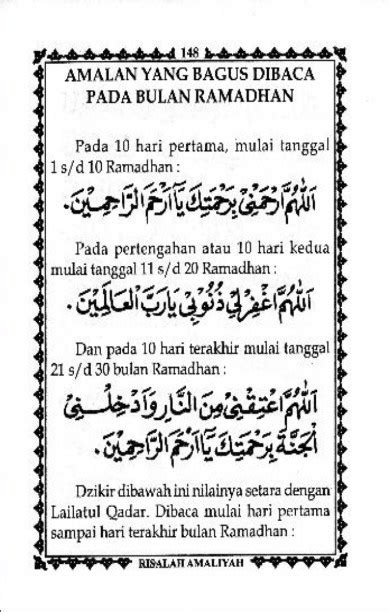 148
AMALAN YANG BAGUS DIBACA
PADA BULAN RAMADHAN
Pada 10 hari pertama, mulai tanggal
1 s/d 10 Ramadhan :
اَللّٰهُمَّ ارْحَمْنِيْ بِرَحْمَتِكَ يَآ اَرْحَمَ الرَّاحِمِيْنَ.
Pada pertengahan atau 10 hari kedua
mulai tanggal 11 s/d 20 Ramadhan :
اَللّٰهُمَّ اغْفِرْلِيْ ذُنُوْبِيْ يَارَبَّ الْعَالَمِيْنَ.
Dan pada 10 hari terakhir mulai tanggal
21 s/d 30 bulan Ramadhan :
اَللّٰهُمَّ اعْتِقْنِيْ مِنَ النَّارِ وَاَدْخِلْنِيْ
الْجَنَّةَ بِرَحْمَتِكَ يَآ اَرْحَمَ الرَّاحِمِيْنَ.
Dzikir dibawah ini nilainya setara dengan
Lailatul Qadar. Dibaca mulai hari pertama
sampai hari terakhir bulan Ramadhan :
RISALAH AMALIYAH